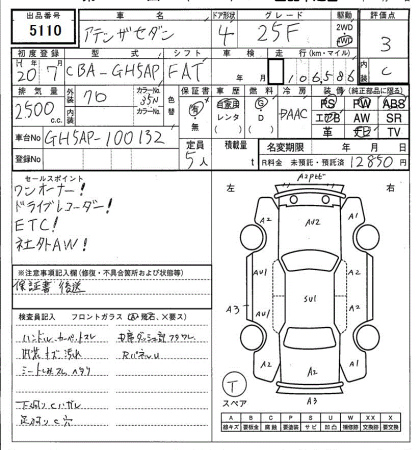 出品番号 車名 ドア形状 グレード 駆動 評価点
5110 アテンザセダン 4 25F 2WD 4WD 3
初度登録 型式 シフト 車検 走行(km・マイル) 内装
H20年7月 CBA-GH5AP FAT 年 月 106,586 C
排気量 外装 カラーNo. 色替 保証書 車歴 燃料 冷房 装備(純正部品に限る)
2500c.c. 70 35N 有・無 自家用 レンタ G D AAC PS PW ABS
エアB AW SR
革 ナビ TV
車台No GH5AP-100132 定員 5人 積載量 t 名変期限 年 月 日
登録No R料金 未預託・預託済 12850円
セールスポイント
ワンオーナー!
ドライブレコーダー!
ETC!
社外AW!
左 右
※注意事項記入欄(修復・不具合箇所および状態等)
保証書 後送
検査員記入 フロントガラス (A.飛石、×要ス)
ハンドル、カーペットスレ
内装キズ汚れ
Rパネルu
下廻りCハガレ
足廻りC穴
A2 A2
AU2
AU1 AU1 A1
A3 SU1
AU1 A2
A2 A2
A2
A3
T
スペア
A B C P S U W X XX X
線キズ 要板金 腐蝕 要塗装 サビ 凹凸 補修跡 交換跡 要交換